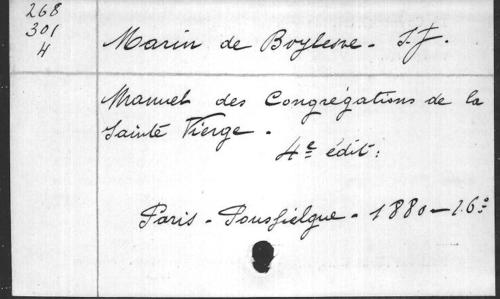 268
301
4
Marin de Boylesve - S.J.
Manuel des Congrégations de la
Sainte Vierge.
4e édit:
Paris - Poussielgue - 1880 - 16°